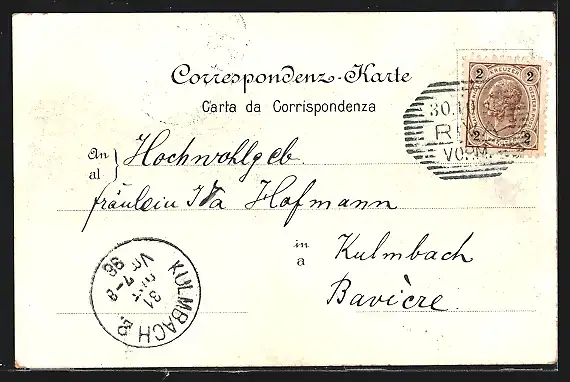 Correspondenz-Karte
Carta da Corrispondenza
An
al
Hochwohlgeb
fräulein Ida Hofmann
in
a
Kulmbach
Bavière
2 KREUZER 2
2 2
30.10
VORM.
KULMBACH
31
7-8
98